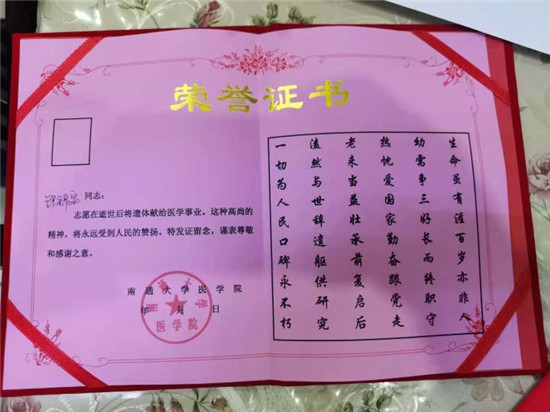 荣誉证书
同志：
志愿在逝世后将遗体献给医学事业。这种高尚的
精神，将永远受到人民的赞扬。特发证留念，谨表尊敬
和感谢之意。
南通大学医学院
年 月 日
南通大学
医学院
生命虽有涯百岁亦非人
幼需争三好长而转职守
热忱爱国家勤奋跟党走
老来当益壮承前复启后
溘然与世辞遗躯供研究
一切为人民口碑永不朽